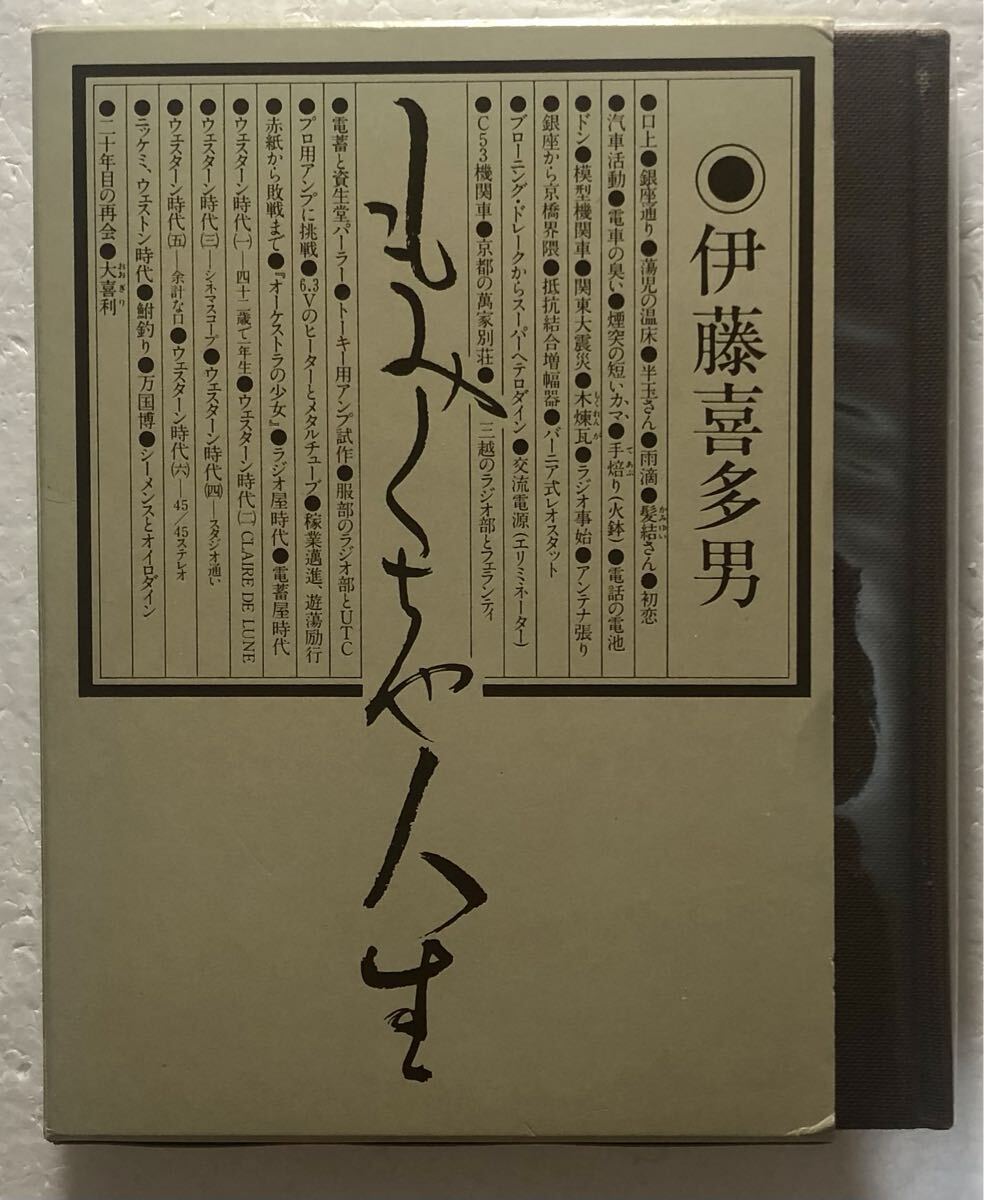 ◉伊藤喜多男
●口上●銀座通り●蕩児の温床●半玉さん●雨滴●髪結さん●初恋
かみゆい
●汽車活動●電車の臭い●煙突の短いカマ●手焙り(火鉢)●電話の電池
てあぶ
●ドン●模型機関車●関東大震災●木煉瓦●ラジオ事始●アンテナ張り
もくれんが
●銀座から京橋界隈●抵抗結合増幅器●バーニア式レオスタット
●ブローニング・ドレークからスーパーヘテロダイン●交流電源(エリミネーター)
●C53機関車●京都の萬家別荘●三越のラジオ部とフェランティ
もみくちゃ人生
●電蓄と資生堂パーラー●トーキー用アンプ試作●服部のラジオ部とUTC
●プロ用アンプに挑戦●6.3Vのヒーターとメタルチューブ●稼業邁進、遊蕩励行
●赤紙から敗戦まで●『オーケストラの少女』●ラジオ屋時代●電蓄屋時代
●ウェスターン時代(一)—四十二歳で一年生●ウェスターン時代(二)CLAIRE DE LUNE
●ウェスターン時代(三)—シネマスコープ●ウェスターン時代(四)—スタジオ通い
●ウェスターン時代(五)—余計な口●ウェスターン時代(六)—45/45ステレオ
●ニッケミ、ウエストン時代●鮒釣り●万国博●シーメンスとオイロダイン
●二十年目の再会●大喜利
おおぎり